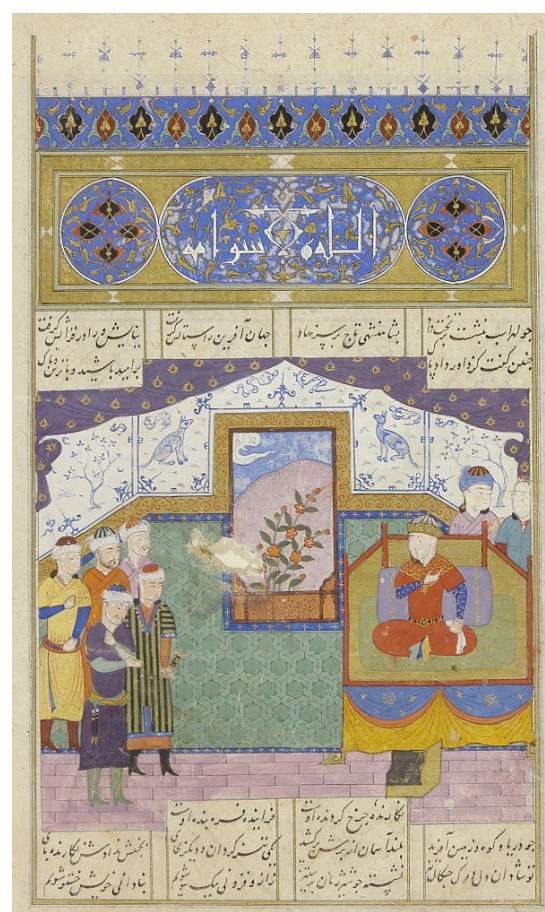 چو لهراسب بنشست بر تخت داد بشاهنشهی تاج بر سر نهاد جهان آفرین را ستایش گرفت نیایش ورا در فزایش گرفت
چنین گفت کز داور داد و پاک پرامید باشید و با ترس و باک
نگارنده چرخ گردنده اوست فزاینده فره بنده اوست
چو دریا و کوه و زمین آفرید بلند آسمان از برش برکشید یکی تیز گردان و دیگر بجای بجنبش ندادش نگارنده پای
تو شادان دل و مرگ چنگال تیز نشسته چو شیر ژیان پر ستیز ز آز و فزونی بیکسو شویم بنادانی خویش خستو شویم